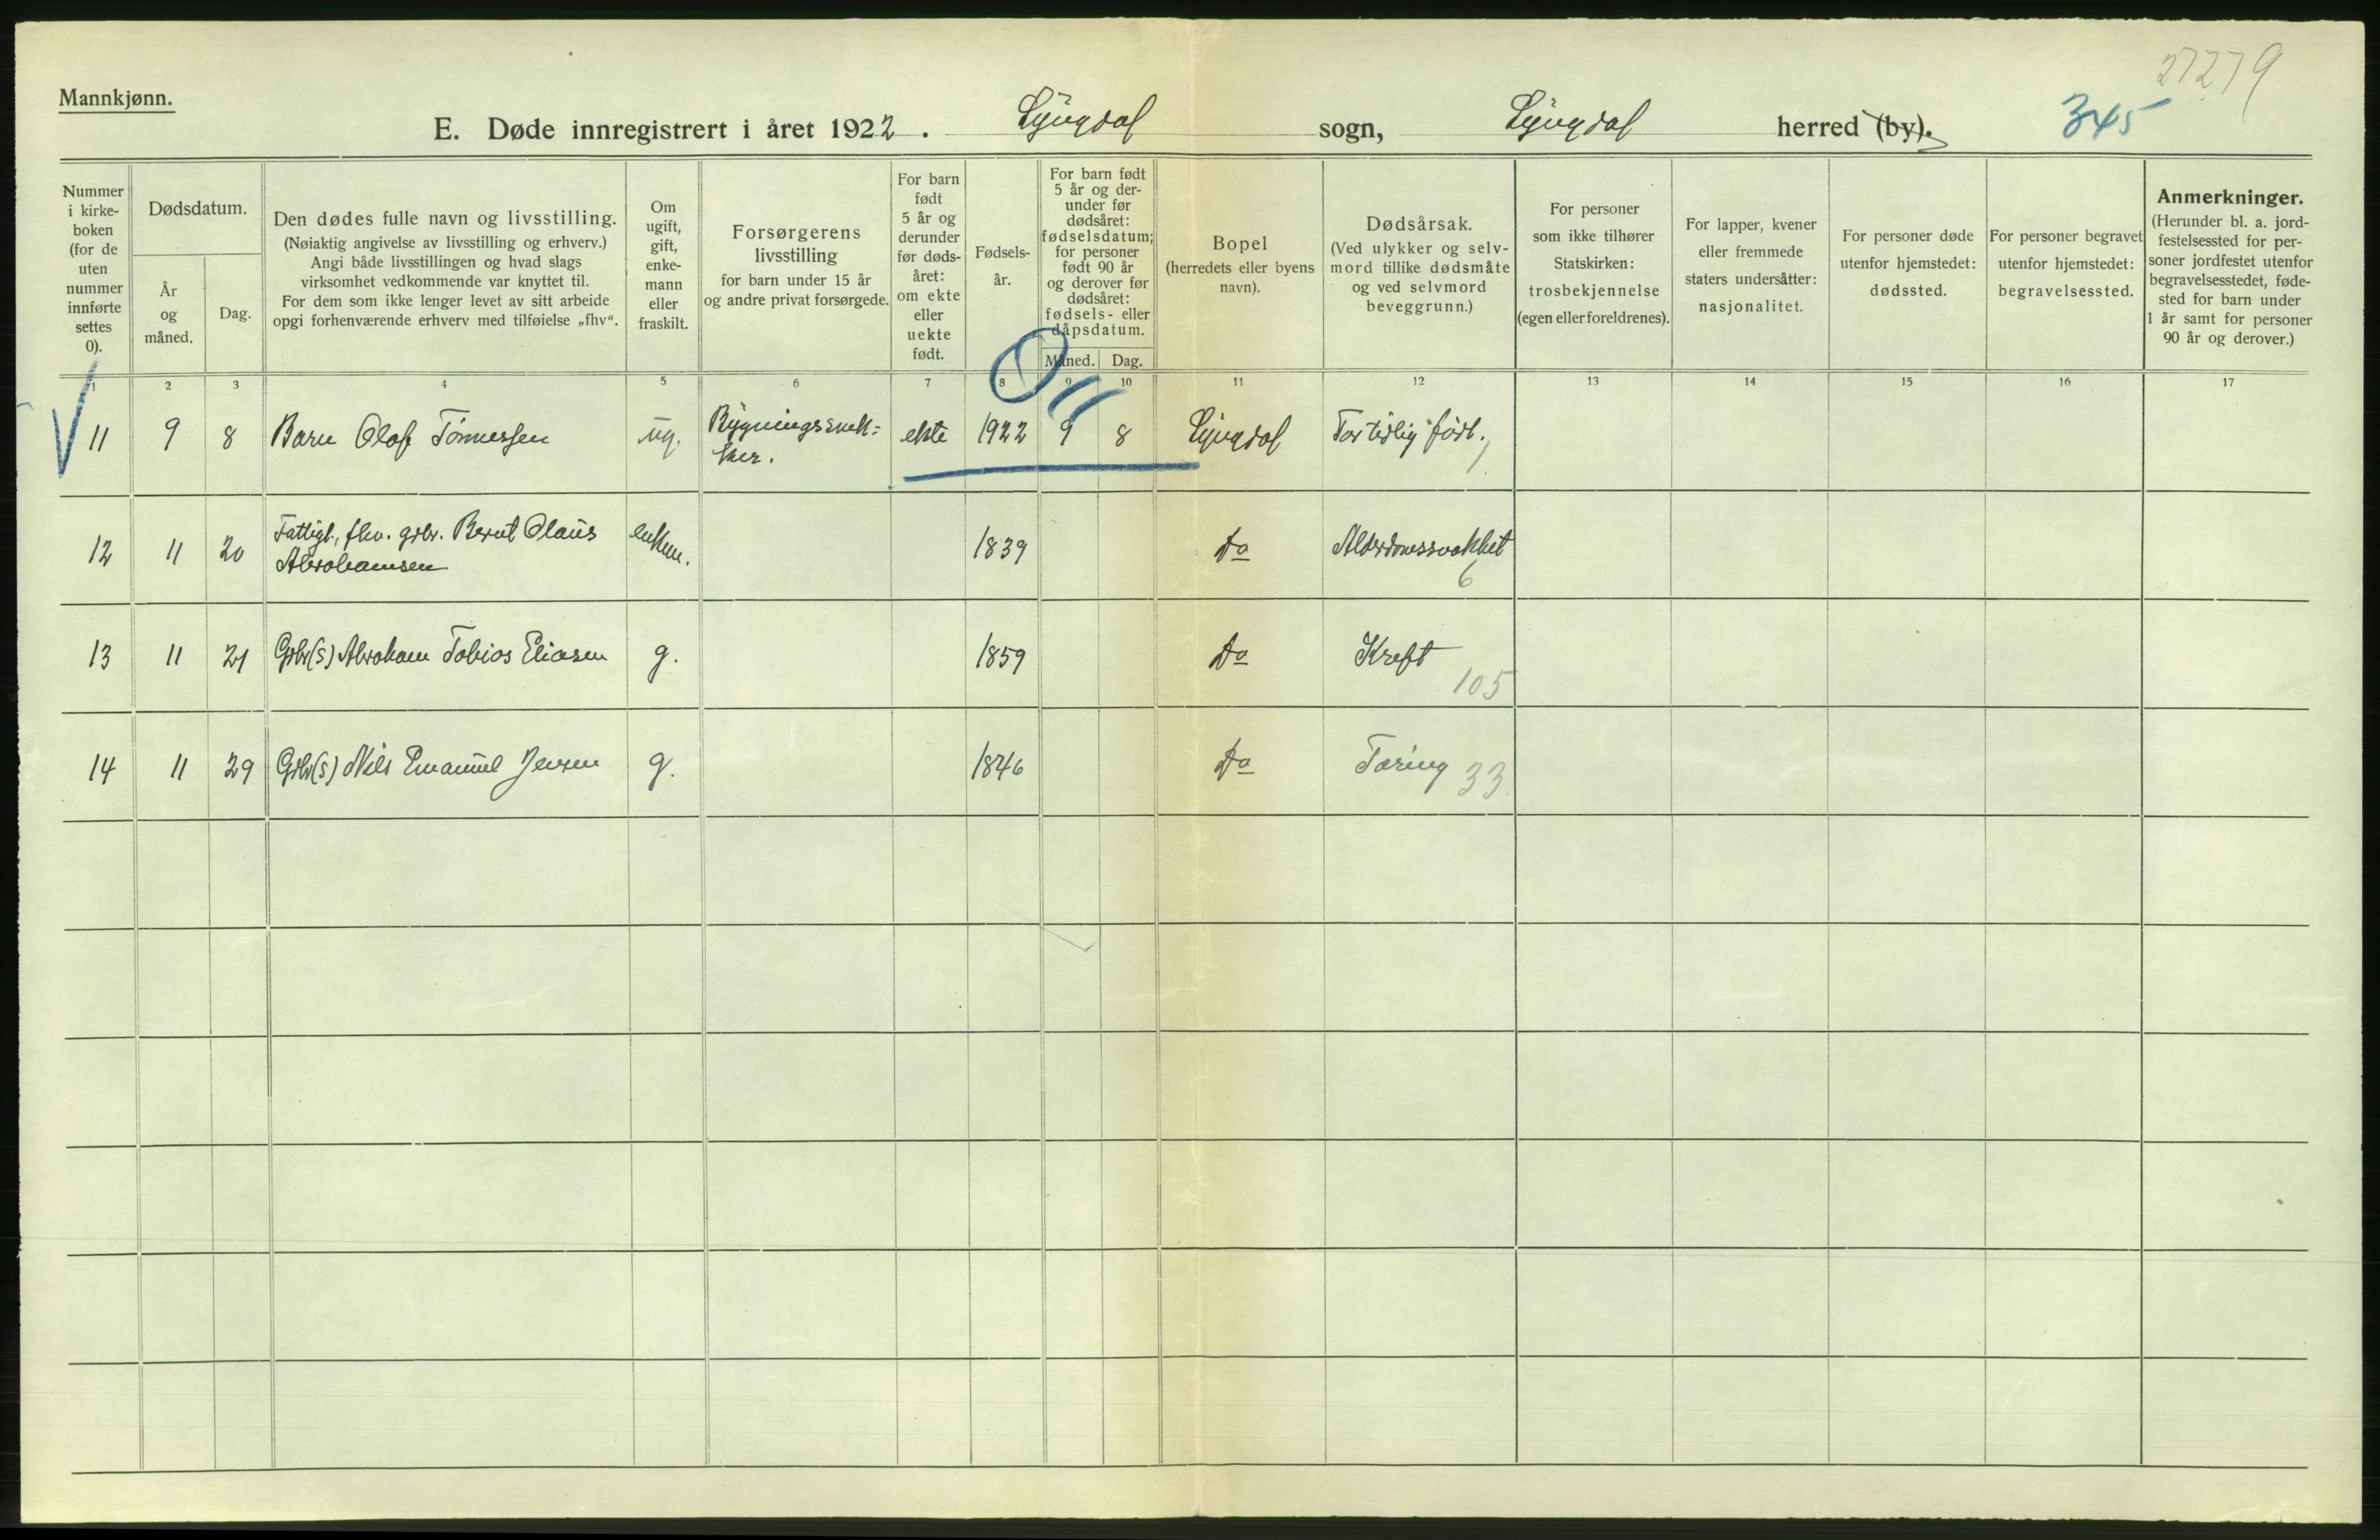 27279
Mannkjønn.
E. Døde innregistrert i året 1922. Lyngdal sogn, Lyngdal herred (by). 345
Nummer i kirke- boken (for de uten nummer innførte settes 0).
Dødsdatum.
År og måned.
Dag.
Den dødes fulle navn og livsstilling.
(Nøiaktig angivelse av livsstilling og erhverv.)
Angi både livsstillingen og hvad slags
virksomhet vedkommende var knyttet til.
For dem som ikke lenger levet av sitt arbeide
opgi forhenværende erhverv med tilføielse „fhv“.
Om ugift, gift, enke- mann eller fraskilt.
Forsørgerens livsstilling
for barn under 15 år
og andre privat forsørgede.
For barn født 5 år og derunder før døds- året: om ekte eller uekte født.
Fødsels- år.
For barn født 5 år og der- under før dødsåret: fødselsdatum; for personer født 90 år og derover før dødsåret: fødsels- eller dåpsdatum.
Måned. Dag.
Bopel
(herredets eller byens navn).
Dødsårsak.
(Ved ulykker og selv- mord tillike dødsmåte og ved selvmord beveggrunn.)
For personer som ikke tilhører Statskirken: trosbekjennelse (egen eller foreldrenes).
For lapper, kvener eller fremmede staters undersåtter: nasjonalitet.
For personer døde utenfor hjemstedet: dødssted.
For personer begravet utenfor hjemstedet: begravelsessted.
Anmerkninger.
(Herunder bl. a. jord- festelsessted for per- soner jordfestet utenfor begravelsesstedet, føde- sted for barn under 1 år samt for personer 90 år og derover.)
1 2 3 4 5 6 7 8 9 10 11 12 13 14 15 16 17
11 9 8 Barn Olaf Tønnessen ug. Bygningssnek= ker. ekte 1922 9 8 Lyngdal For tidlig født.
12 11 20 Fattigl., fhv. grbr. Bernt Olaus Abrahamsen enkem. 1839 Do Alderdomssvakhet 6
13 11 21 Grbr(S) Abraham Tobias Eliasen g. 1859 Do Kreft 105
14 11 29 Grbr(S) Nils Emanuel Jensen g. 1846 Do Tæring 33